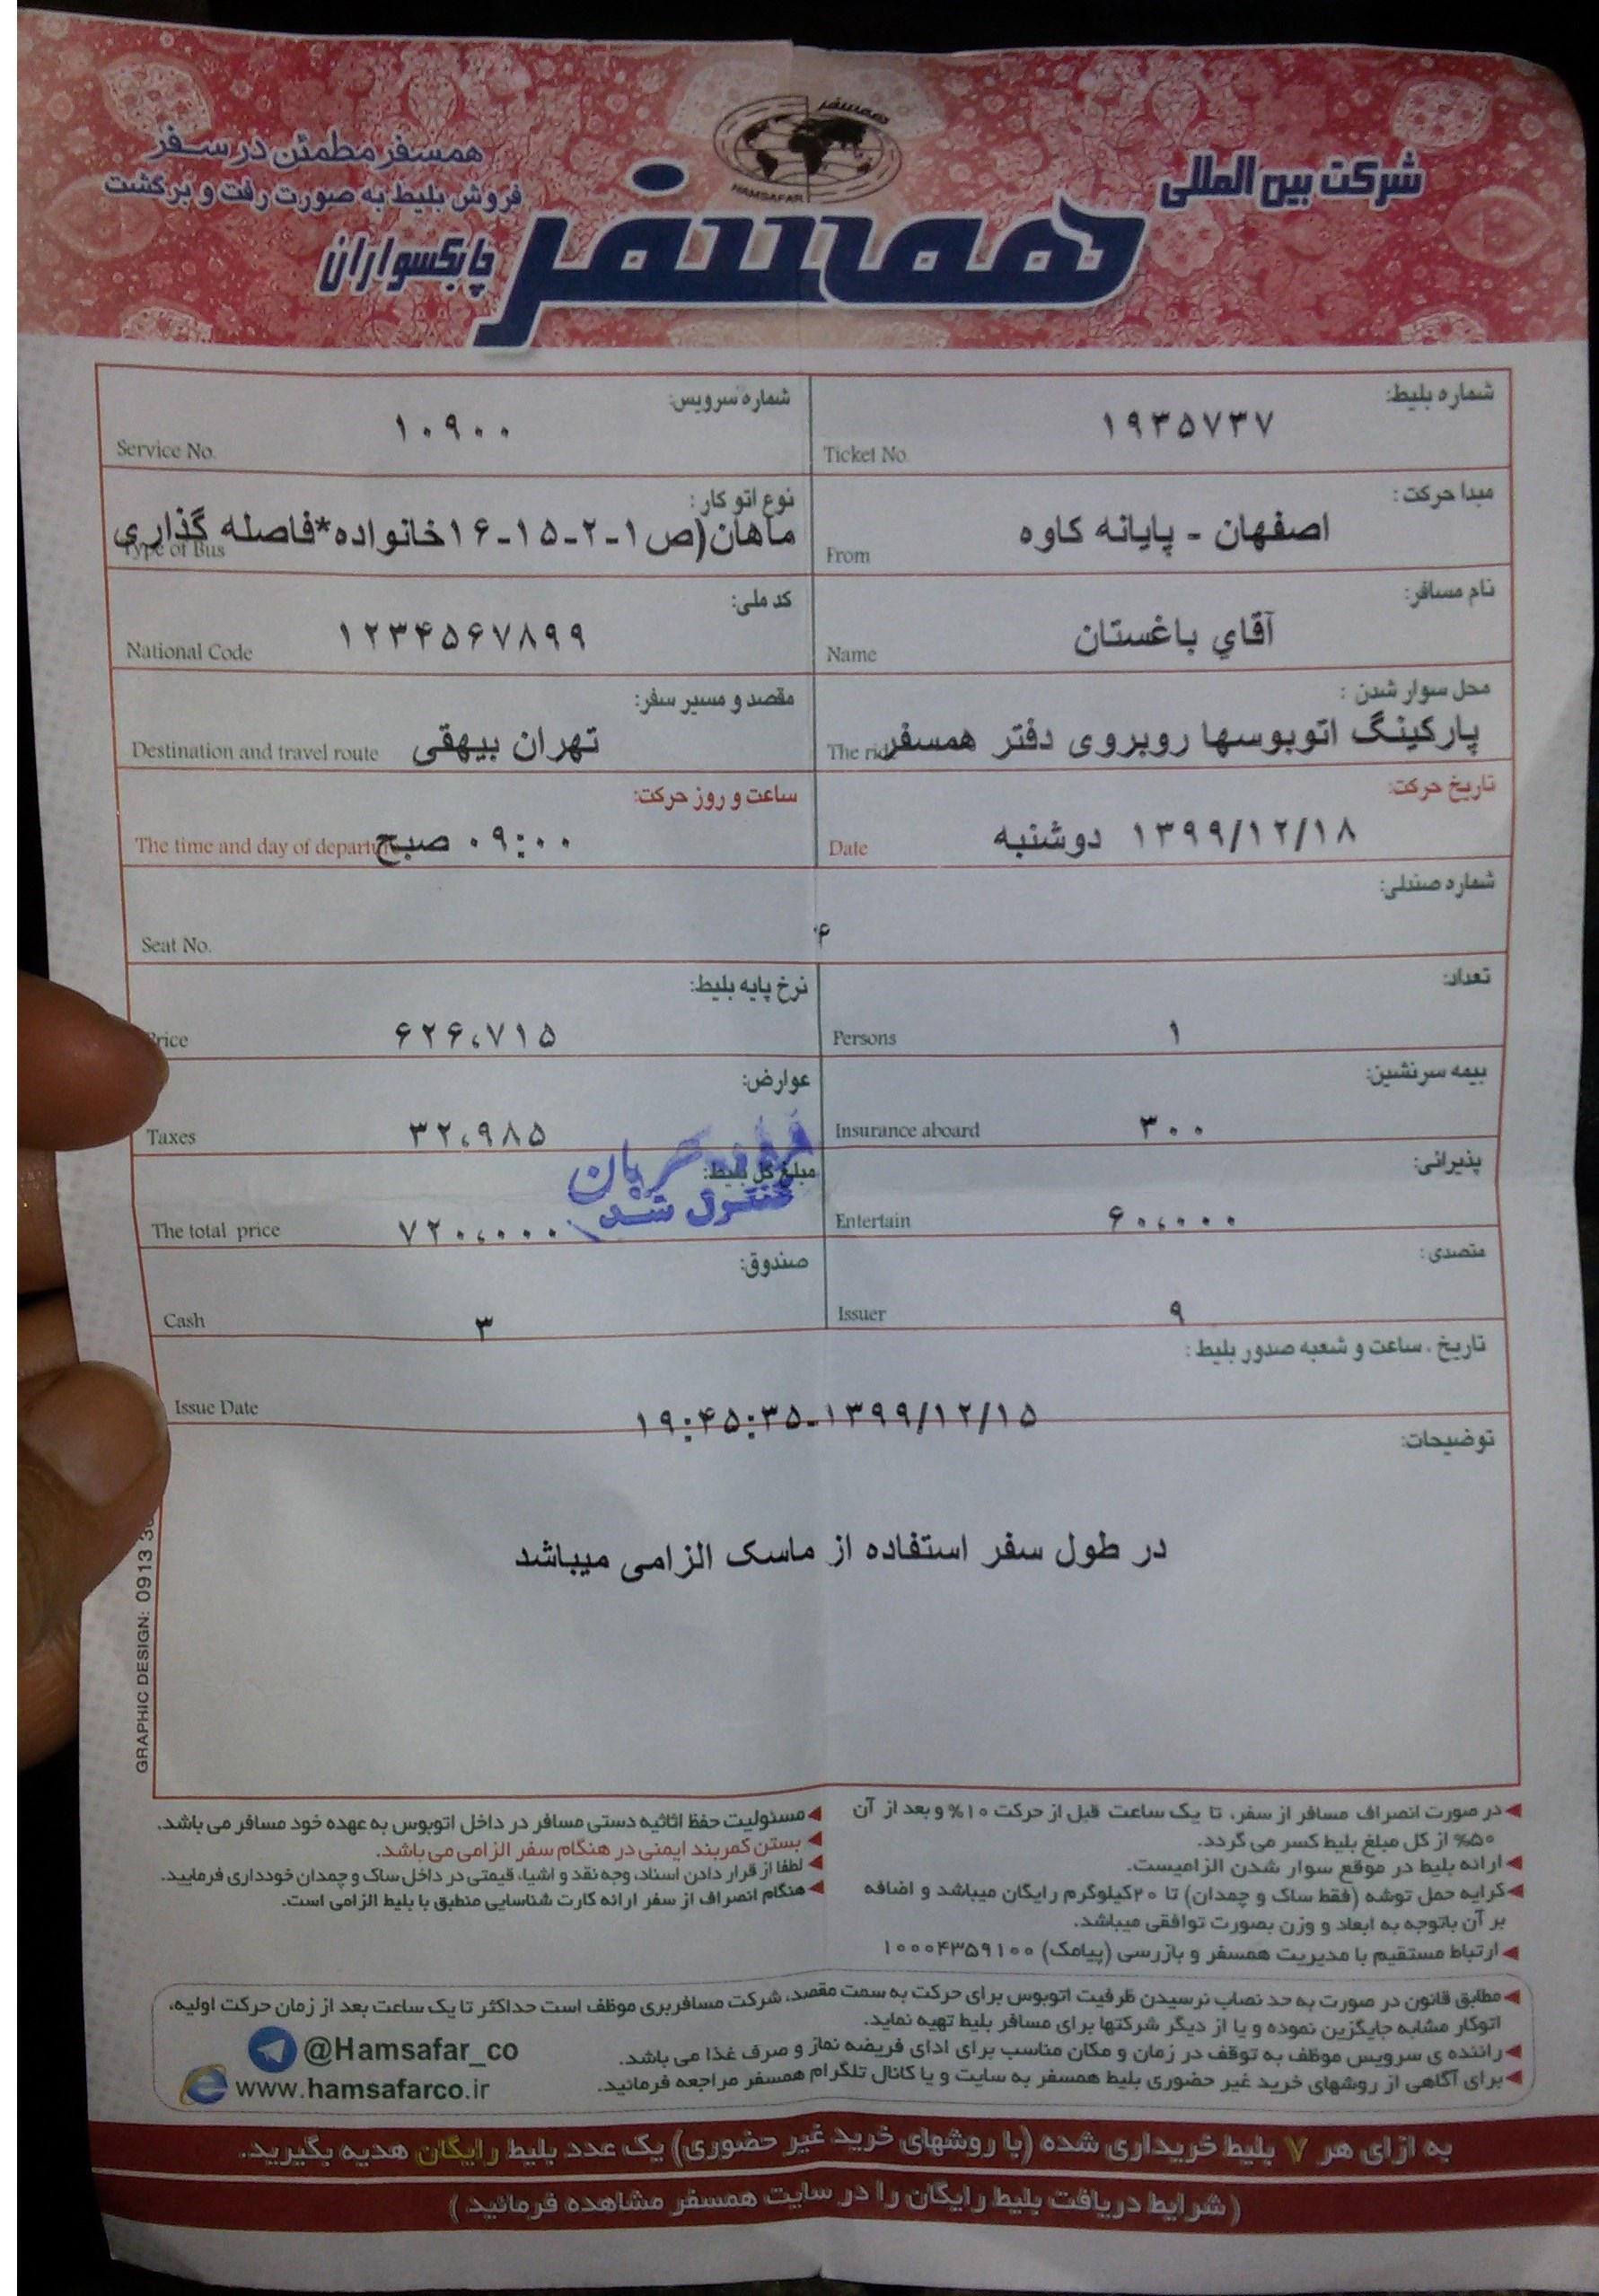 همسفر
HAMSAFAR
شرکت بین المللی
همسفر
چابکسواران
همسفر مطمئن در سفر
فروش بلیط به صورت رفت و برگشت
شماره بلیط:
۱۹۳۵۷۳۷
Ticket No.
شماره سرویس:
۱۰۹۰۰
Service No.
مبدا حرکت:
اصفهان - پایانه کاوه
From
نوع اتو کار:
ماهان(ص۱-۲-۱۵-۱۶خانواده*فاصله گذاری
Type of Bus
نام مسافر:
آقاي باغستان
Name
کد ملی:
۱۲۳۴۵۶۷۸۹۹
National Code
محل سوار شدن :
پارکینگ اتوبوسها روبروی دفتر همسفر
The ride
مقصد و مسیر سفر:
تهران بیهقی
Destination and travel route
تاریخ حرکت:
۱۳۹۹/۱۲/۱۸ دوشنبه
Date
ساعت و روز حرکت:
۰۹:۰۰ صبح
The time and day of departure
شماره صندلی:
Seat No.
تعداد:
۱
Persons
نرخ پایه بلیط:
۶۲۶،۷۱۵
Price
بیمه سرنشین:
۳۰۰
Insurance aboard
عوارض:
۳۲،۹۸۵
Taxes
پذیرائی:
۶۰،۰۰۰
Entertain
مبلغ کل بلیط:
۷۲۰،۰۰۰
The total price
کنترول شد
متصدی :
۹
Issuer
صندوق:
۳
Cash
تاریخ ، ساعت و شعبه صدور بلیط :
۱۹:۴۵:۳۵-۱۳۹۹/۱۲/۱۵
Issue Date
توضیحات:
در طول سفر استفاده از ماسک الزامی میباشد
GRAPHIC DESIGN: 0913
در صورت انصراف مسافر از سفر، تا یک ساعت قبل از حرکت ۱۰% و بعد از آن
۵۰% از کل مبلغ بلیط کسر می گردد.
ارائه بلیط در موقع سوار شدن الزامیست.
کرایه حمل توشه (فقط ساک و چمدان) تا ۲۰کیلوگرم رایگان میباشد و اضافه
بر آن باتوجه به ابعاد و وزن بصورت توافقی میباشد.
ارتباط مستقیم با مدیریت همسفر و بازرسی (پیامک) ۱۰۰۰۴۳۵۹۱۰۰
مسئولیت حفظ اثاثیه دستی مسافر در داخل اتوبوس به عهده خود مسافر می باشد.
بستن کمربند ایمنی در هنگام سفر الزامی می باشد.
لطفا از قرار دادن اسناد، وجه نقد و اشیاء قیمتی در داخل ساک و چمدان خودداری فرمایید.
هنگام انصراف از سفر ارائه کارت شناسایی منطبق با بلیط الزامی است.
مطابق قانون در صورت به حد نصاب نرسیدن ظرفیت اتوبوس برای حرکت به سمت مقصد، شرکت مسافربری موظف است حداکثر تا یک ساعت بعد از زمان حرکت اولیه،
اتوکار مشابه جایگزین نموده و یا از دیگر شرکتها برای مسافر بلیط تهیه نماید.
راننده ی سرویس موظف به توقف در زمان و مکان مناسب برای ادای فریضه نماز و صرف غذا می باشد.
برای آگاهی از روشهای خرید غیر حضوری بلیط همسفر به سایت و یا کانال تلگرام همسفر مراجعه فرمائید.
@Hamsafar_co
www.hamsafarco.ir
به ازای هر ۷ بلیط خریداری شده (با روشهای خرید غیر حضوری) یک عدد بلیط رایگان هدیه بگیرید.
(شرایط دریافت بلیط رایگان را در سایت همسفر مشاهده فرمائید)